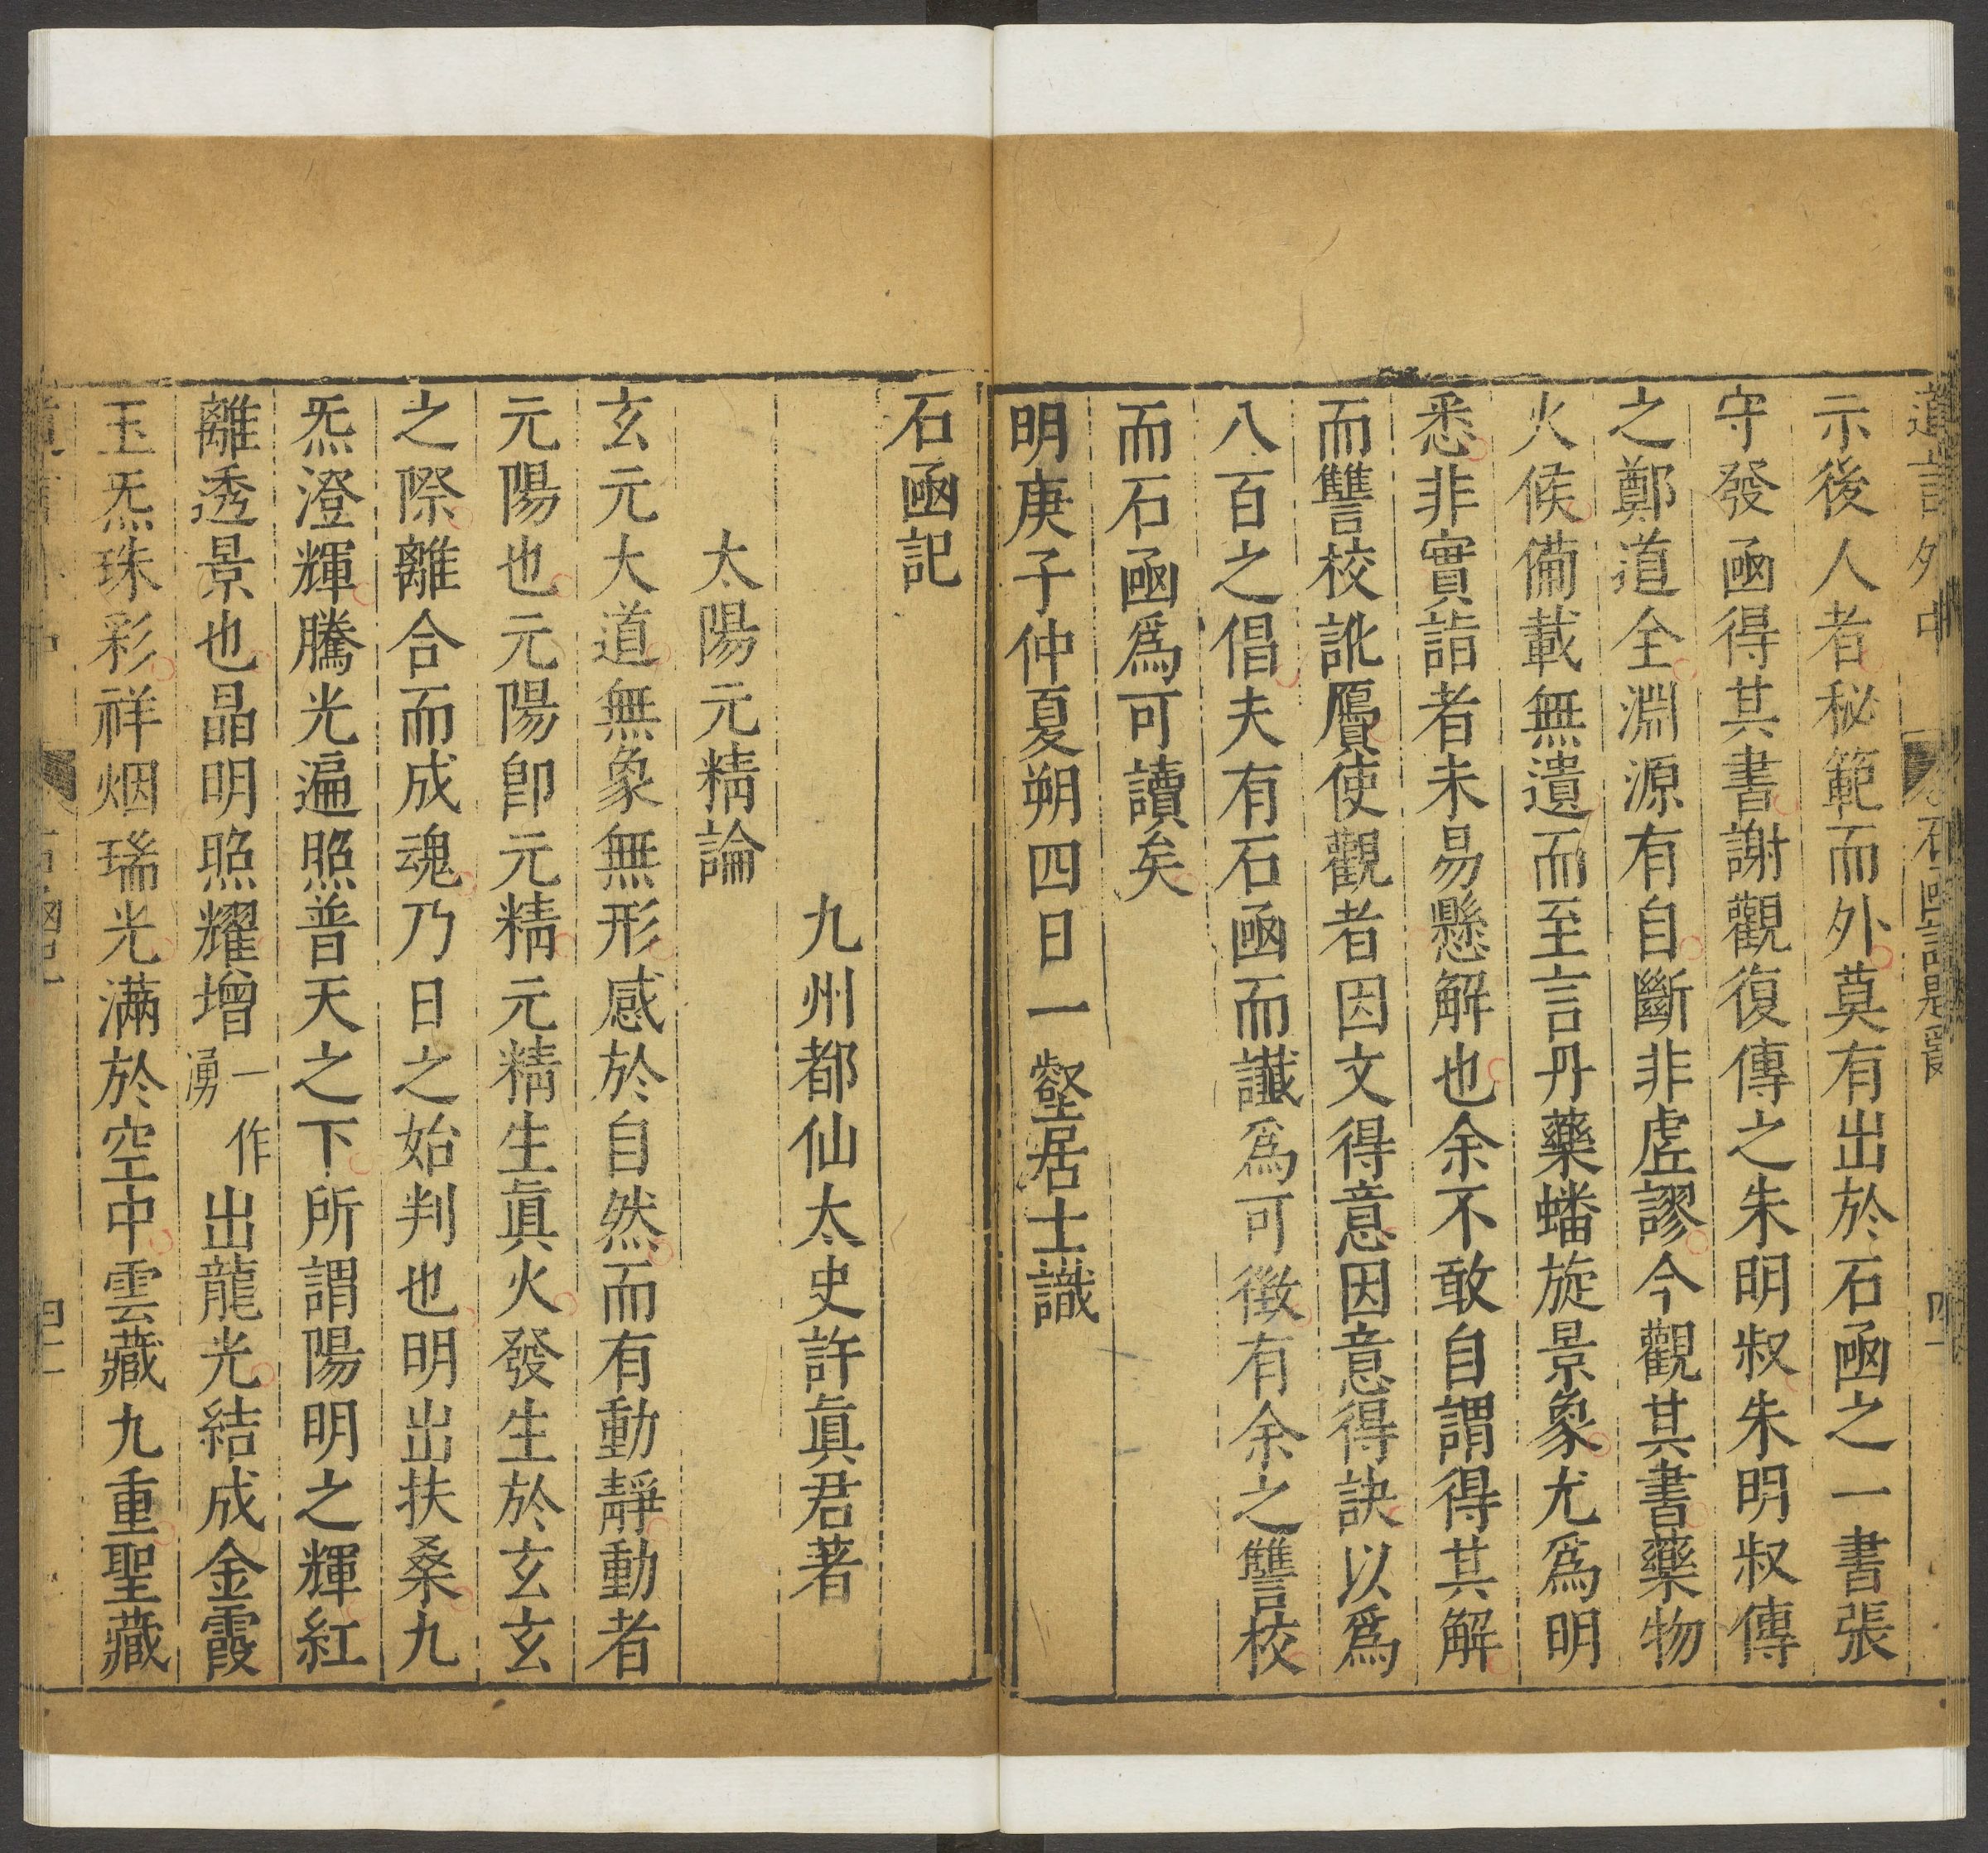 示後人者秘範而外莫有出於石凾之一書張
守發凾得其書謝觀復傳之朱明叔朱明叔傳
之鄭道全淵源有自斷非虛謬今觀其書藥物
火候備載無遺而至言丹藥蟠旋景象尤爲明
悉非實詣者未易懸解也余不敢自謂得其解
而讐校訛贗使觀者因文得意因意得訣以爲
八百之倡夫有石凾而讖爲可徵有余之讐校
而石凾爲可讀矣
明庚子仲夏朔四日一壑居士識
石凾記
九州都仙太史許眞君著
太陽元精論
玄元大道無象無形感於自然而有動靜動者
元陽也元陽卽元精元精生眞火發生於玄玄
之際離合而成魂乃日之始判也明出扶桑九
炁澄輝騰光遍照普天之下所謂陽明之輝紅
離透景也晶明照耀增一作湧出龍光結成金霞
玉炁珠彩祥烟瑞光滿於空中雲藏九重聖藏